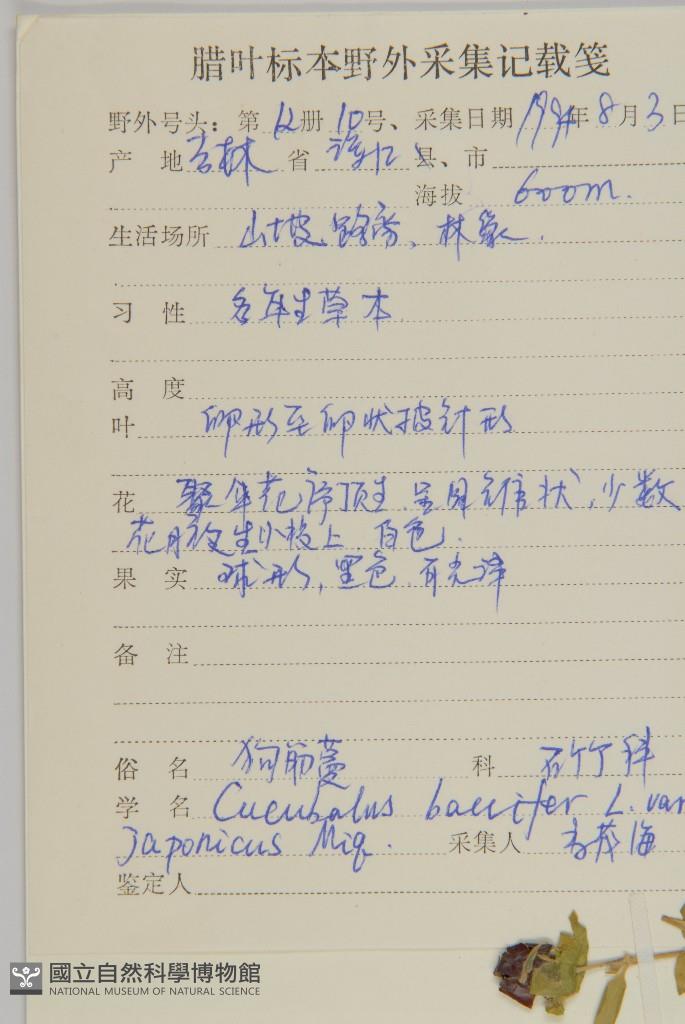 腊叶标本野外采集记载笺
野外号头：第 12 册 10 号、采集日期 1994年 8 月 3 日
产 地 吉林 省 县、市
海拔 600m.
生活场所 山坡、路旁、林缘.
习 性 多年生草本
高 度
叶 卵形至卵状披针形
花 聚伞花序顶生, 呈圆锥状, 少数
花腋生小枝上 白色.
果 实 球形, 黑色 有光泽
备 注
俗 名 狗筋蔓 科 石竹科
学 名 Cucubalus baccifer L. var
Japonicus Miq. 采集人 茂海
鉴定人
國立自然科學博物館
NATIONAL MUSEUM OF NATURAL SCIENCE